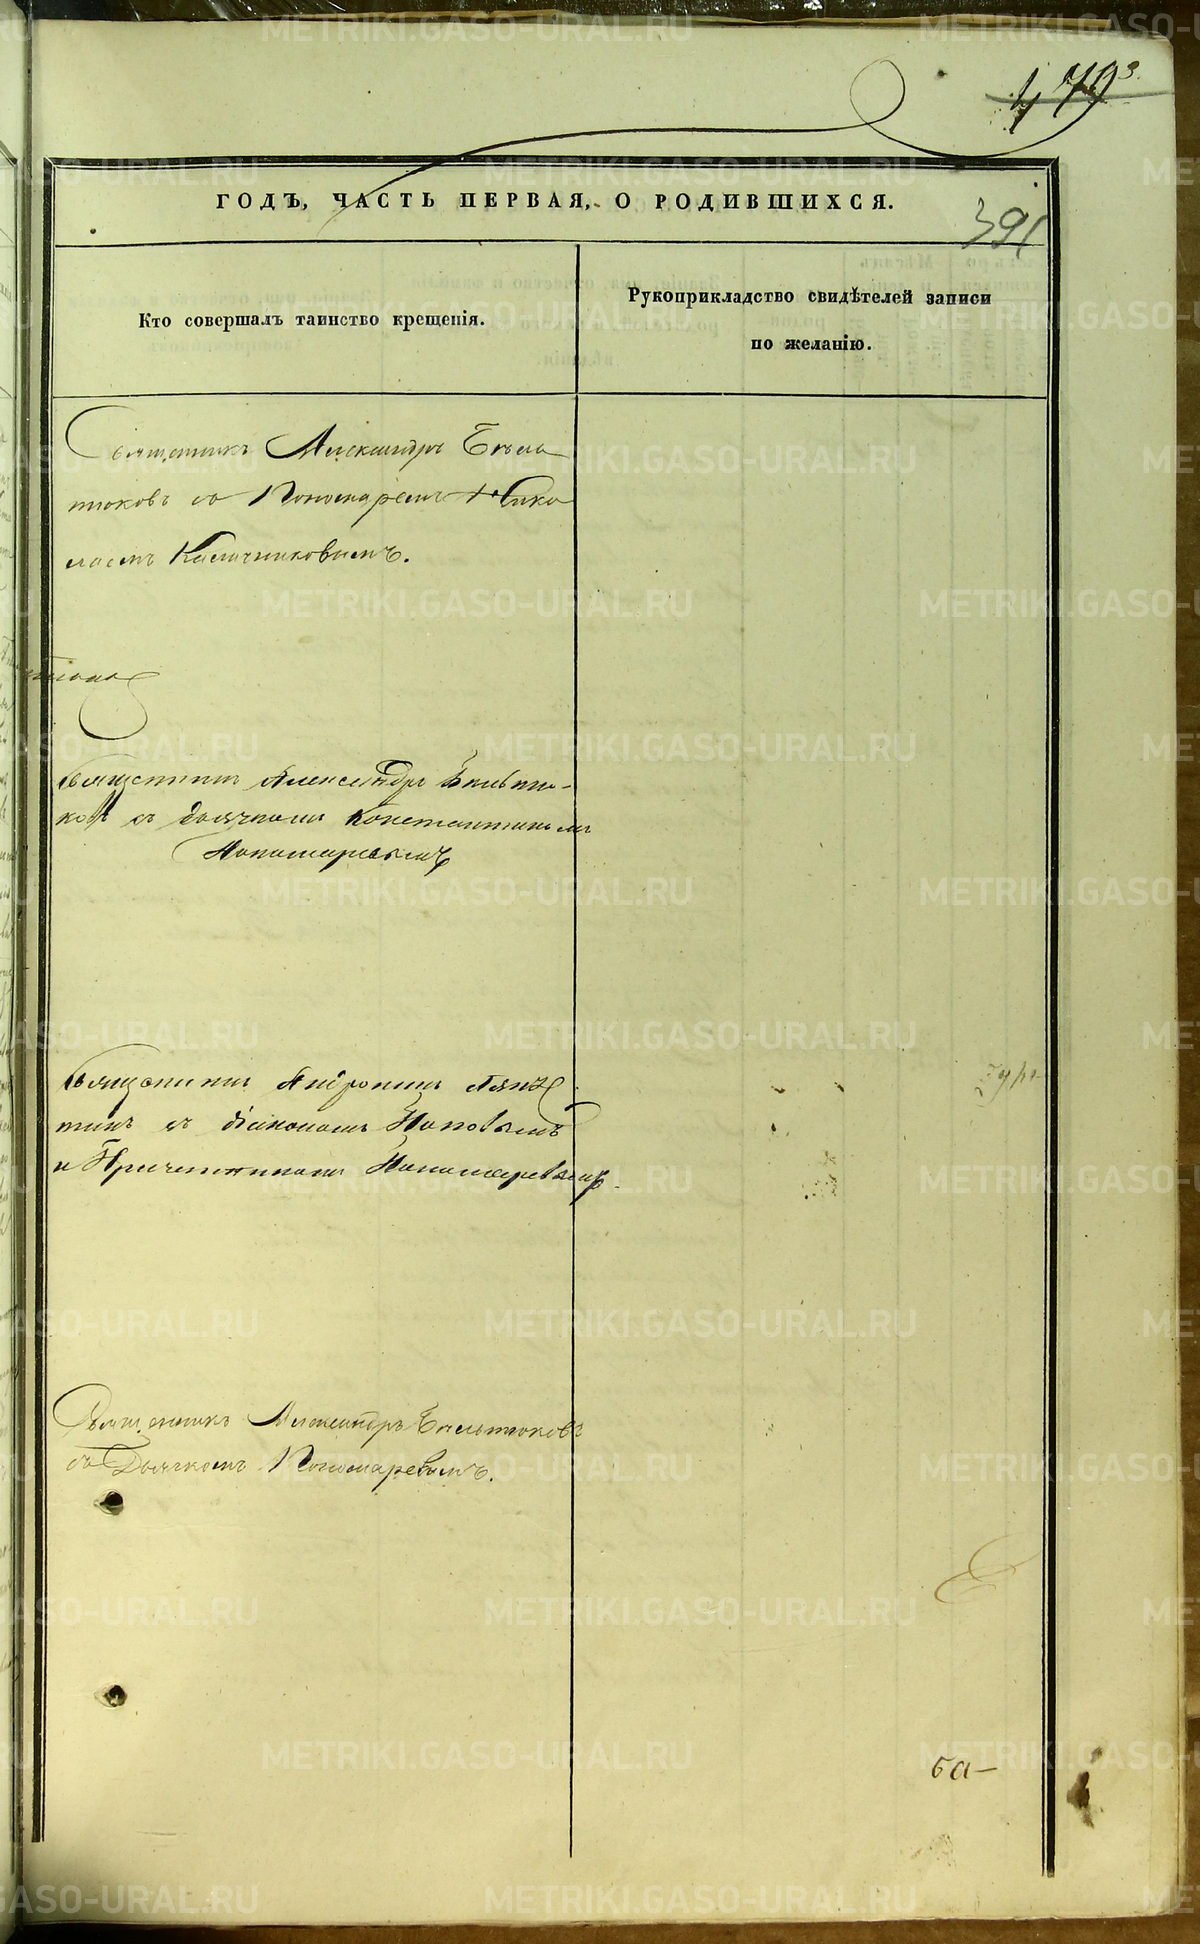 479
ГОДЪ, ЧАСТЬ ПЕРВАЯ, О РОДИВШИХСЯ.
391
Кто совершалъ таинство крещенія.
Рукоприкладство свидѣтелей записи
по желанію.
Священникъ Александръ Бѣль
тюковъ съ Пономаремъ Нико
лаемъ
Священникъ Александръ Бѣльтю-
ковъ съ дьячкомъ Константиномъ
Пономаревымъ
Священникъ
съ діакономъ Поповымъ
и Причетникомъ Пономаревымъ.
Священникъ Александръ Бѣльтюковъ
съ Дьячкомъ Пономаревымъ.
ба-
METRIKI.GASO-URAL.RU